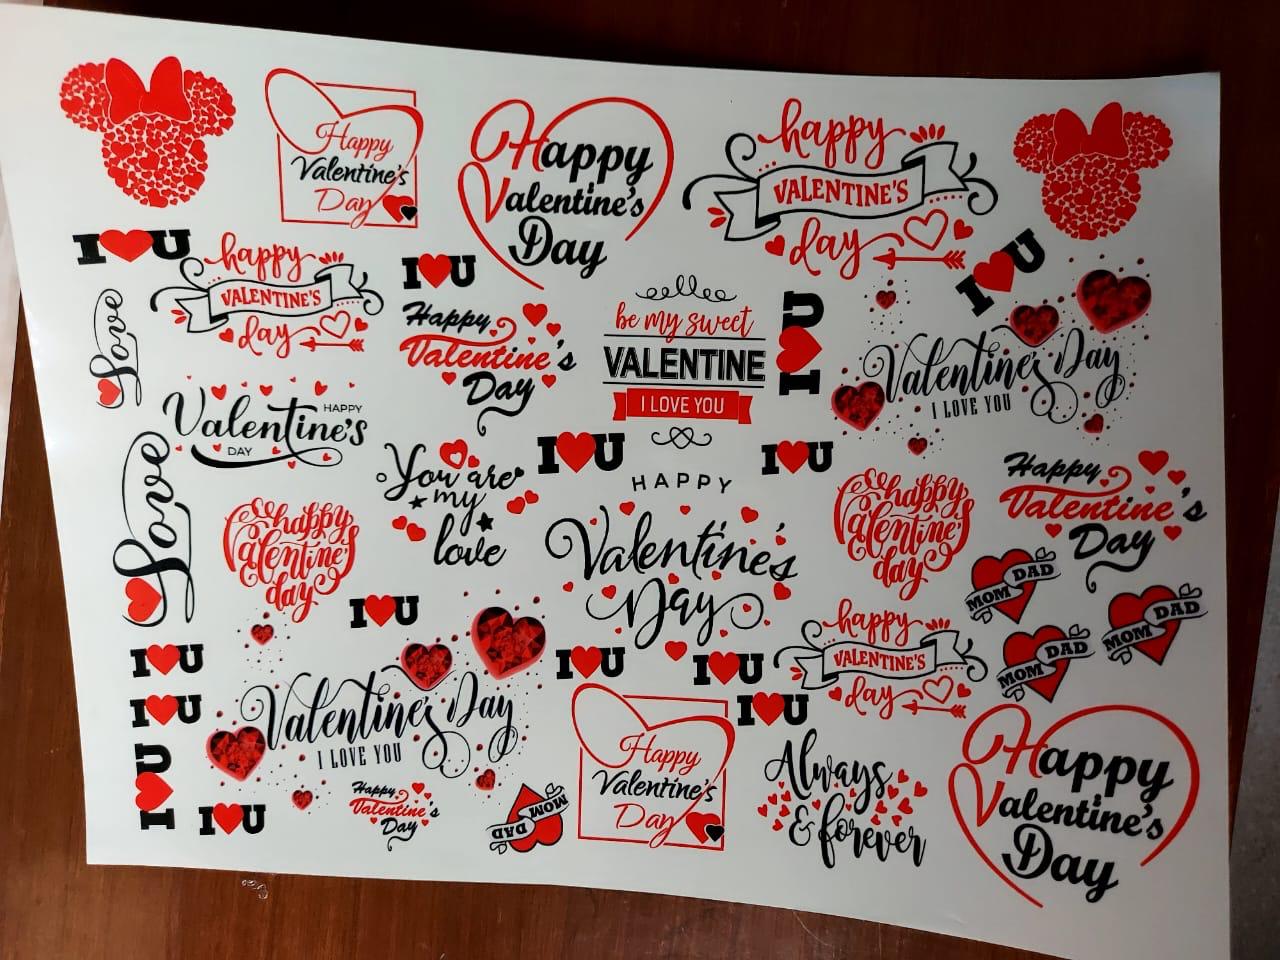 Happy
Valentine's
Day
Happy
Valentine's
Day
happy
VALENTINE'S
day
I U
happy
VALENTINE'S
day
I U
I U
Love
Happy
Valentine's
Day
be my sweet
VALENTINE
I LOVE YOU
I U
Valentine's Day
I LOVE YOU
Valentine's
HAPPY
DAY
Love
You are
my
love
I U
I U
HAPPY
Valentine's
Day
happy
Valentine's
day
happy
Valentine's
day
Happy
Valentine's
Day
MOM DAD
MOM DAD
MOM DAD
I U
I U
I U
I U
I U
happy
VALENTINE'S
day
I U
I U
Valentine's Day
I LOVE YOU
I U
I U
Happy
Valentine's
Day
MOM DAD
Happy
Valentine's
Day
Always
& forever
Happy
Valentine's
Day